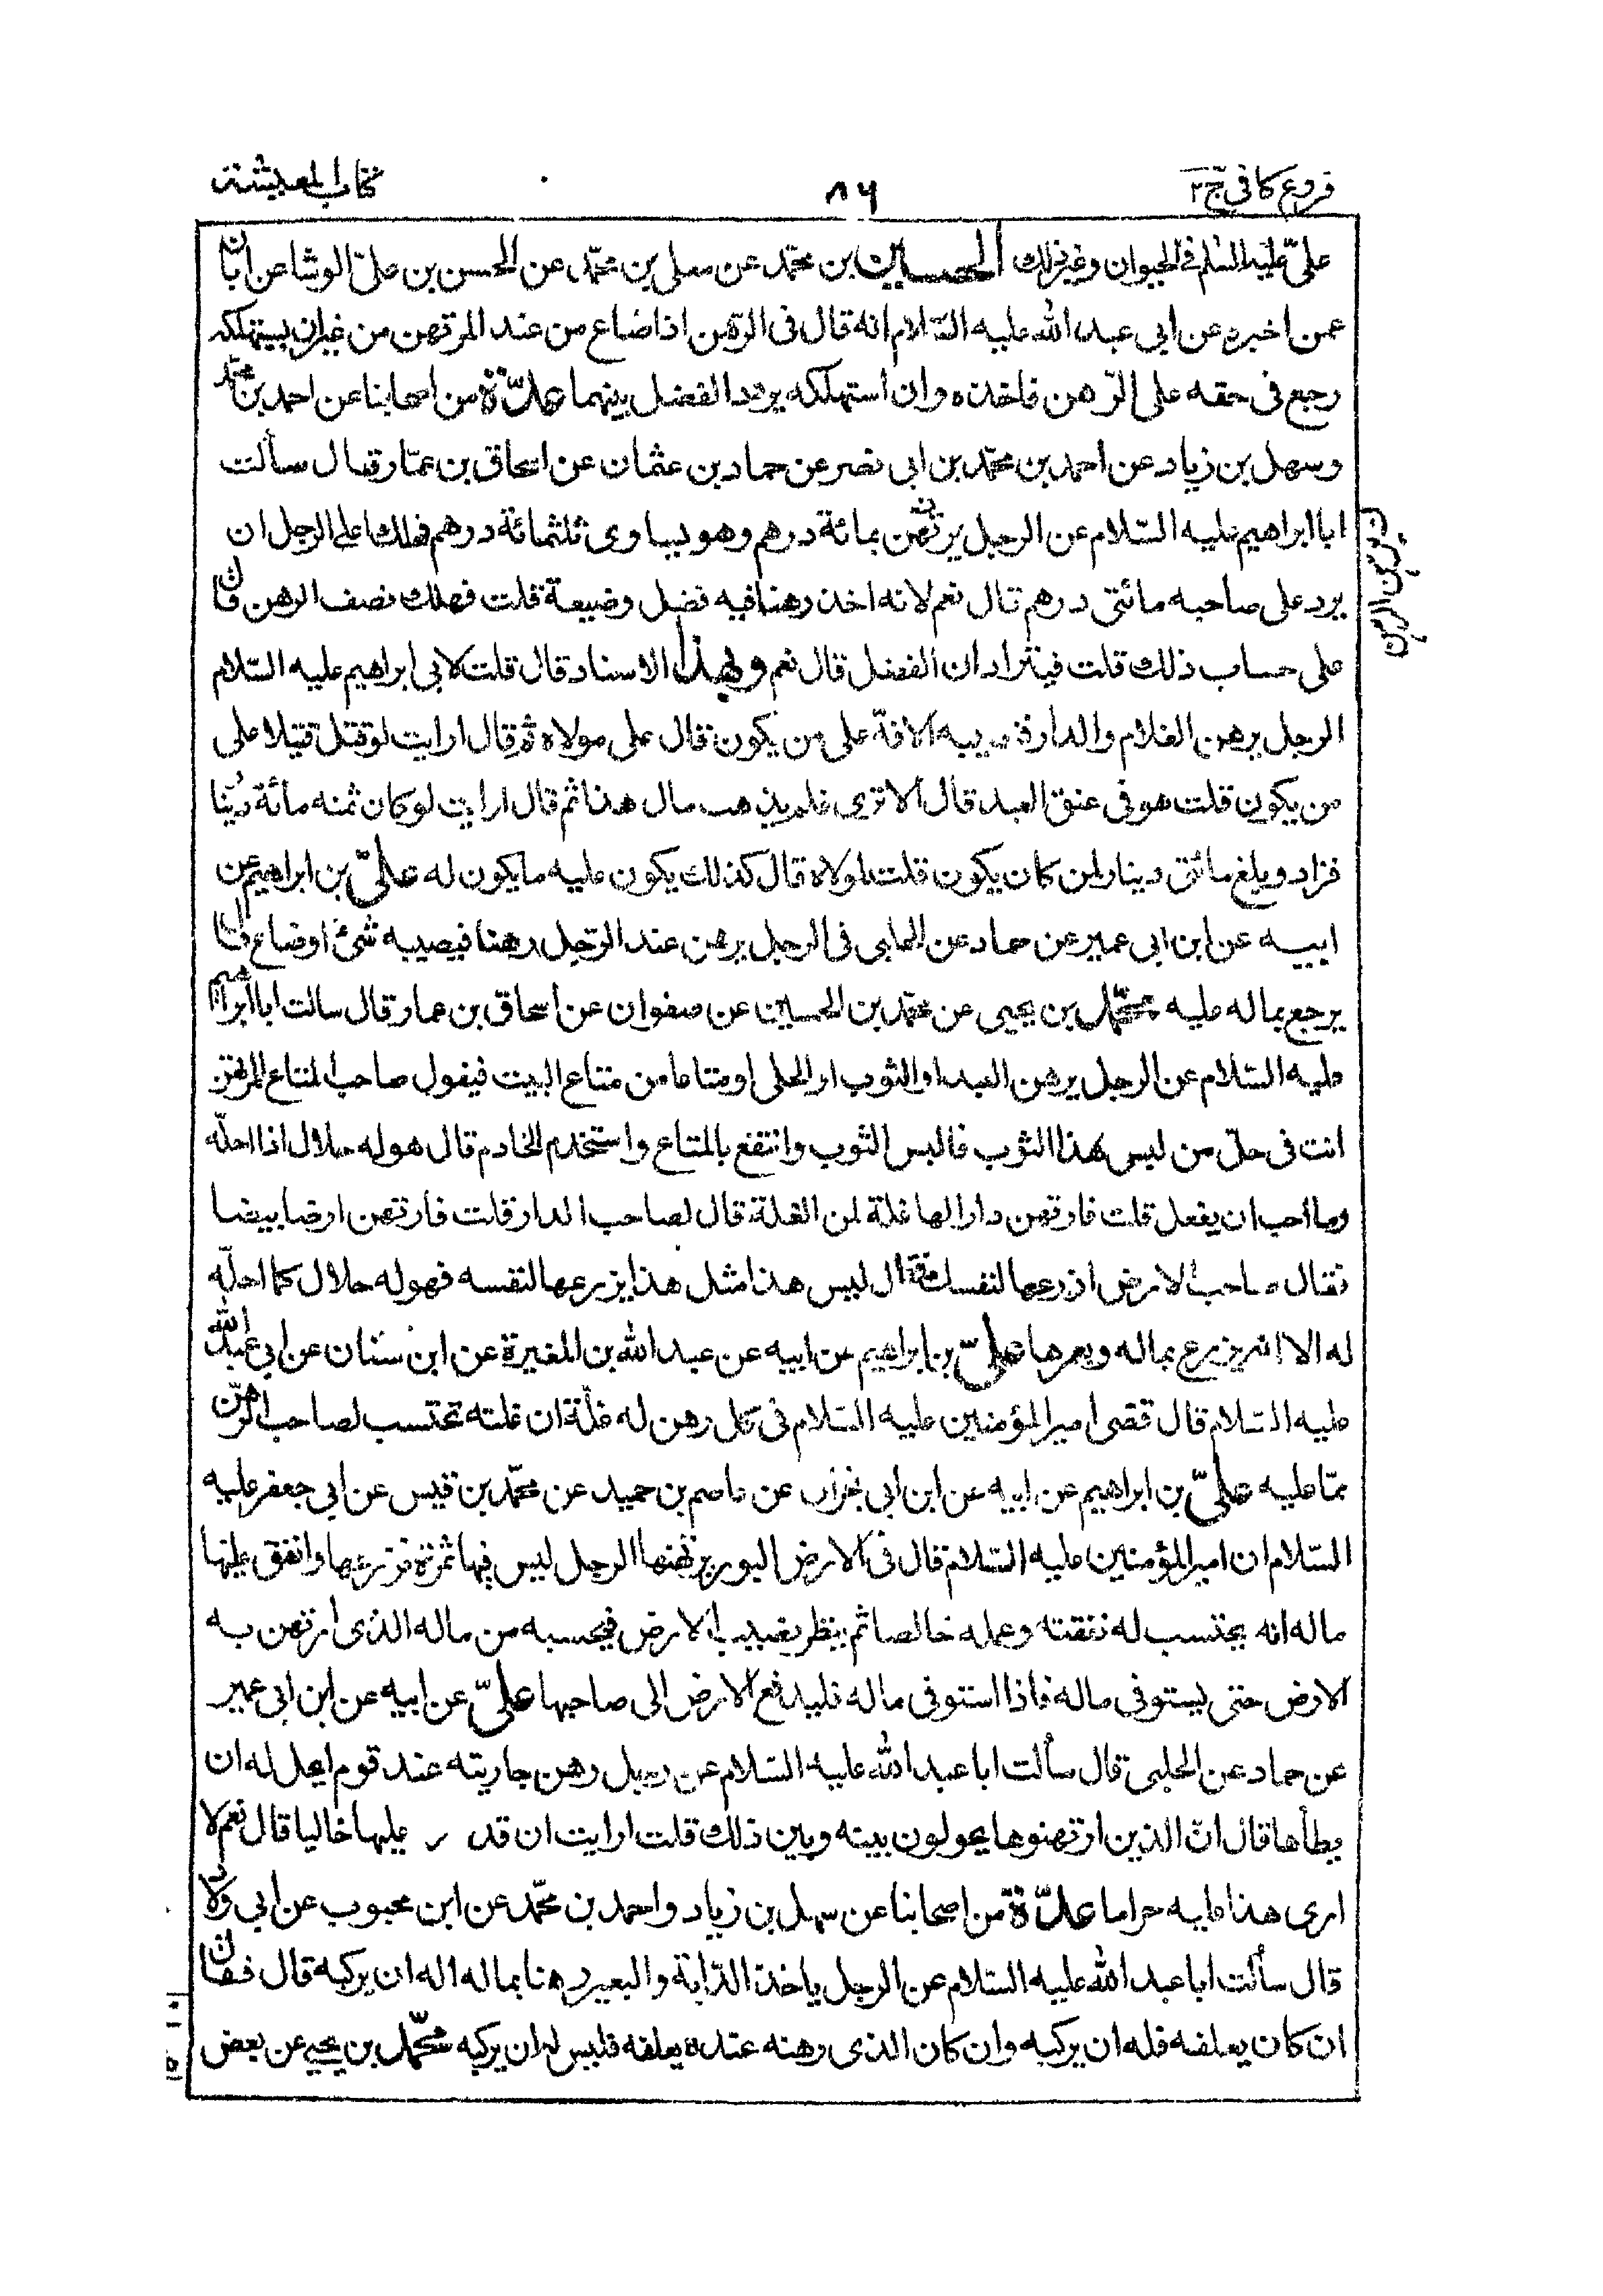 فروع كافى ج٢
٨٦
كتاب المعيشة
علىّ عليه السلم فى الحيوان وغير ذلك الحسين بن محمّد عن معلى بن محمّد عن الحسن بن علىّ الوشا عن ابان
عمن اخبره عن ابى عبد الله عليه السّلام انه قال فى الرّهن اذا ضاع من عند المرتهن من غير ان يستهلكه
رجع فى حقه على الرّاهن فاخذه وان استهلكه يردد الفضل بينهما عدّة من اصحابنا عن احمد بن محمّد
وسهل بن زياد عن احمد بن محمّد بن ابى نصر عن حماد بن عثمان عن اسحاق بن عمّار قال سألت
ابا ابراهيم عليه السّلام عن الرجل يرتهن بمائة درهم وهو يساوى ثلثمائة درهم فهلك اعلى الرجل ان
يرد على صاحبه مائتى درهم قال نعم لانه اخذ رهنا فيه فضل وضيعة قلت فهلك نصف الرهن قال
على حساب ذلك قلت فيترادان الفضل قال نعم وبهذا الاسناد قال قلت لابى ابراهيم عليه السّلام
الرجل يرهن الغلام والدار فتصيبه الافة على من يكون قال على مولاه ثم قال ارايت لو قتل قتيلا على
من يكون قلت هو فى عنق العبد قال الا ترى فلم يذهب مال هذا ثم قال ارايت لو كان ثمنه مائة دينار
فزاد وبلغ مائتى دينار لمن كان يكون قلت لمولاه قال كذلك يكون عليه ما يكون له علىّ بن ابراهيم عن
ابيه عن ابن ابى عمير عن حماد عن الحلبى فى الرجل يرهن عند الرّجل رهنا فيصيبه شئ او ضاع قال
يرجع بماله عليه محمّد بن يحيى عن محمّد بن الحسين عن صفوان عن اسحاق بن عمار قال سالت ابا ابراهيم
عليه السّلام عن الرجل يرهن العبد او الثوب او الحلى او متاعا من متاع البيت فيقول صاحب المتاع للمرتهن
انت فى حلّ من لبس هذا الثوب فالبس الثوب وانتفع بالمتاع واستخدم الخادم قال هو له حلال اذا احلّه
وما احب ان يفعل قلت فارتهن دارا لها غلة لمن الغلة قال لصاحب الدار قلت فارتهن ارضا بيضا
فقال صاحب الارض ازرعها لنفسك فقال ليس هذا مثل هذا يزرعها لنفسه فهو له حلال كما احلّه
له الا انه يزرع بماله ويعمرها علىّ بن ابراهيم عن ابيه عن عبد الله بن المغيرة عن ابن سنان عن ابى عبد الله
عليه السّلام قال قضى امير المؤمنين عليه السّلام فى كل رهن له غلّة ان غلته تحتسب لصاحب الرّهن
ممّا عليه علىّ بن ابراهيم عن ابيه عن ابن ابى نجران عن عاصم بن حميد عن محمّد بن قيس عن ابى جعفر عليه
السّلام ان امير المؤمنين عليه السّلام قال فى الارض البور يرتهنها الرجل ليس فيها ثمرة فزرعها وانفق عليها
ماله انه يحتسب له نفقته وعمله خالصا ثم ينظر نصيب الارض فيحسبه من ماله الذى ارتهن به
الارض حتى يستوفى ماله فاذا استوفى ماله فليدفع الارض الى صاحبها علىّ عن ابيه عن ابن ابى عمير
عن حماد عن الحلبى قال سألت ابا عبد الله عليه السّلام عن رجل رهن جاريته عند قوم ايحل له ان
يطأها قال انّ الذين ارتهنوها يحولون بينه وبين ذلك قلت ارايت ان قدر عليها خاليا قال نعم لا
ارى هذا عليه حراما عدّة من اصحابنا عن سهل بن زياد واحمد بن محمّد عن ابن محبوب عن ابى ولاد
قال سألت ابا عبد الله عليه السّلام عن الرجل ياخذ الدّابة والبعير رهنا بماله اله ان يركبه قال فقال
ان كان يعلفه فله ان يركبه وان كان الذى رهنه عنده يعلفه فليس له ان يركبه محمّد بن يحيى عن بعض